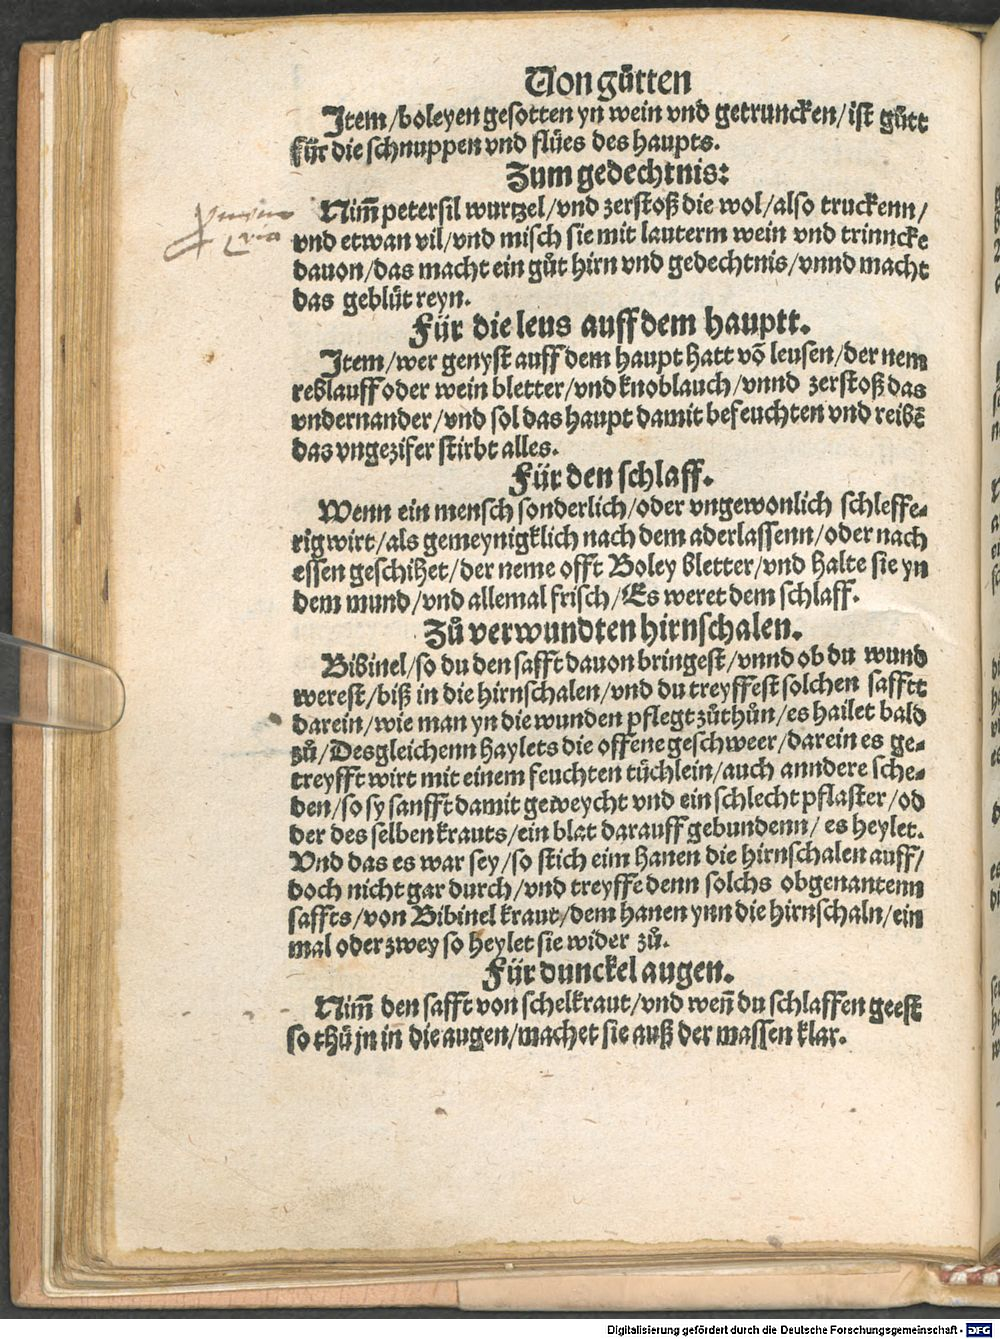 Von gůtten
Item/boleyen gesotten yn wein vnd getruncken/ist gůtt
für die schnuppen vnd flües des haupts.
Zum gedechtnis:
Nim̃ petersil wurtzel/vnd zerstoß die wol/also truckenn/
vnd etwan vil/vnd misch sie mit lauterm wein vnd trinncke
dauon/das macht ein gůt hirn vnd gedechtnis/vnnd macht
das geblüt reyn.
Für die leus auff dem hauptt.
Item/wer genyst auff dem haupt hatt võ leusen/der nem
reblauff oder wein bletter/vnd knoblauch/vnnd zerstoß das
vndernander/vnd sol das haupt damit befeuchten vnd reibẽ
das vngezifer stirbt alles.
Für den schlaff.
Wenn ein mensch sonderlich/oder vngewonlich schleffe⸗
rig wirt/als gemeynigklich nach dem aderlassenn/oder nach
essen geschihet/der neme offt Boley bletter/vnd halte sie yn
dem mund/vnd allemal frisch/Es weret dem schlaff.
Zů verwundten hirnschalen.
Bibinel/so du den safft dauon bringest/vnnd ob du wund
werest/biß in die hirnschalen/vnd du treyffest solchen safftt
darein/wie man yn die wunden pflegt zůthůn/es hailet bald
zů/Desgleichenn haylets die offene geschweer/darein es ge⸗
treyfft wirt mit einem feuchten tüchlein/auch anndere sche⸗
den/so sy sanfft damit geweycht vnd ein schlecht pflaster/od
der des selben krauts/ein blat darauff gebundenn/es heylet.
Vnd das es war sey/so stich eim hanen die hirnschalen auff/
doch nicht gar durch/vnd treyffe denn solchs obgenantenn
saffts/von Bibinel kraut/dem hanen ynn die hirnschaln/ein
mal oder zwey so heylet sie wider zů.
Für dunckel augen.
Nim̃ den safft von schelkraut/vnd weñ du schlaffen geest
so thů jn in die augen/machet sie auß der massen klar.
Digitalisierung gefördert durch die Deutsche Forschungsgemeinschaft - DFG